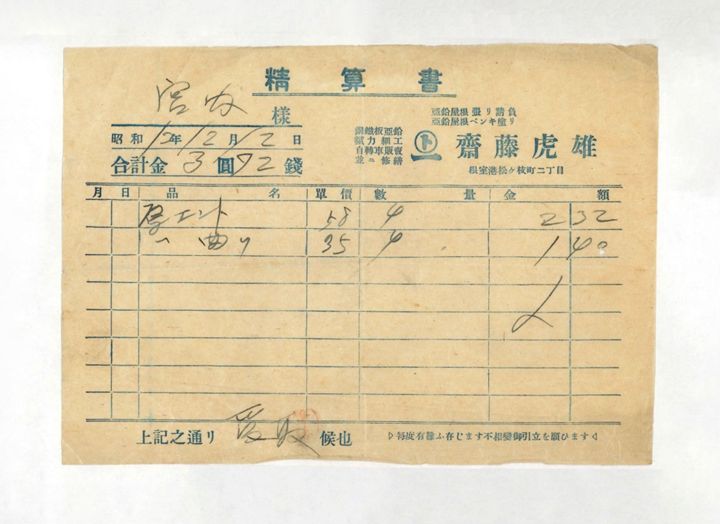 精算書
宮内様
亜鉛屋根張リ請負
亜鉛屋根ペンキ塗リ
銅鐵板亜鉛
錻力細工
自轉車販賣
並ニ修繕
ト 齋藤虎雄
根室港松ヶ枝町二丁目
昭和12年12月2日
合計金3圓72錢
月 日 品名 單價 數量 金額
エント 58 4 2 32
〃 曲リ 35 4 1 40
上記之通リ 受取 候也
毎度有難ふ存じます不相變御引立を願ひます